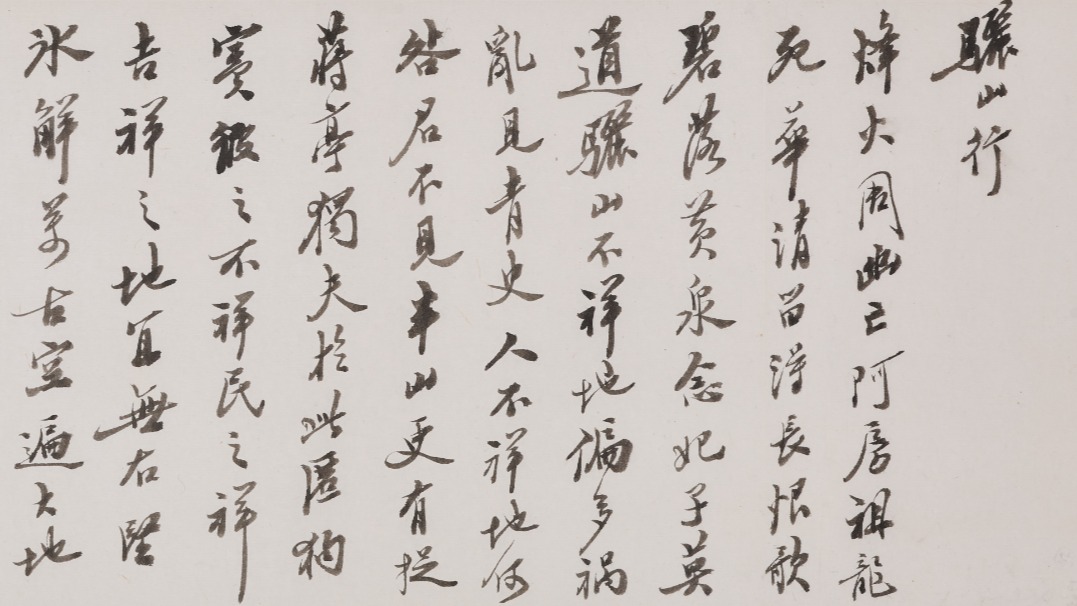 驪山行
烽火周幽亡阿房祖龍
死華清留得長恨歌
碧落黄泉念妃子莫
道驪山不祥地偏多禍
亂見青史人不祥地何
咎君不見半山更有捉
蔣亭獨夫於此匿狗
竇彼之不祥民之祥
吉祥之地宜無右堅
冰解萬古遍大地